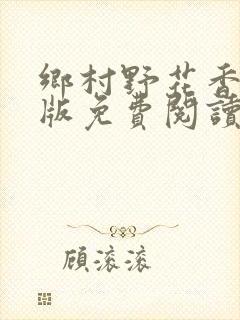 鄉村野花香
版免費閱讀
顧滾滾